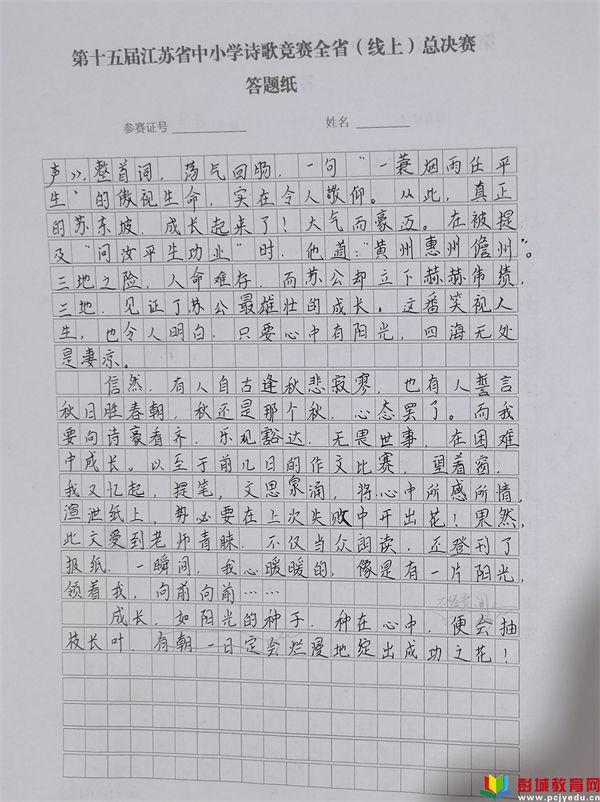 第十五届江苏省中小学诗歌竞赛全省（线上）总决赛
答题纸
参赛证号 姓名
声》，整首词，荡气回肠，一句“一蓑烟雨任平
生”的傲视生命，实在令人敬仰。从此，真正
的苏东坡，成长起来了！大气而豪迈。在被提
及“问汝平生功业”时，他道：“黄州惠州儋州”。
三地之险，人命难存，而苏公却立下赫赫伟绩，
三地，见证了苏公最雄壮的成长。这番笑视人
生，也令人明白，只要心中有阳光，四海无处
是凄凉。
信然，有人自古逢秋悲寂寥，也有人誓言
秋日胜春朝，秋还是那个秋，心态罢了。而我
要向诗豪看齐，乐观豁达，无畏世事，在困难
中成长。以至于前几日的作文比赛，望着窗，
我又忆起，提笔，文思泉涌，将心中所感所情，
渲泄纸上，势必要在上次失败中开出花！果然，
此文受到老师青睐，不仅当众朗读，还登刊了
报纸，一瞬间，我心暖暖的，像是有一片阳光，
领着我，向前向前……
成长，如阳光的种子，种在心中，便会抽
枝长叶，有朝一日定会烂漫地绽出成功之花！
彭城教育网
www.pcjyedu.cn